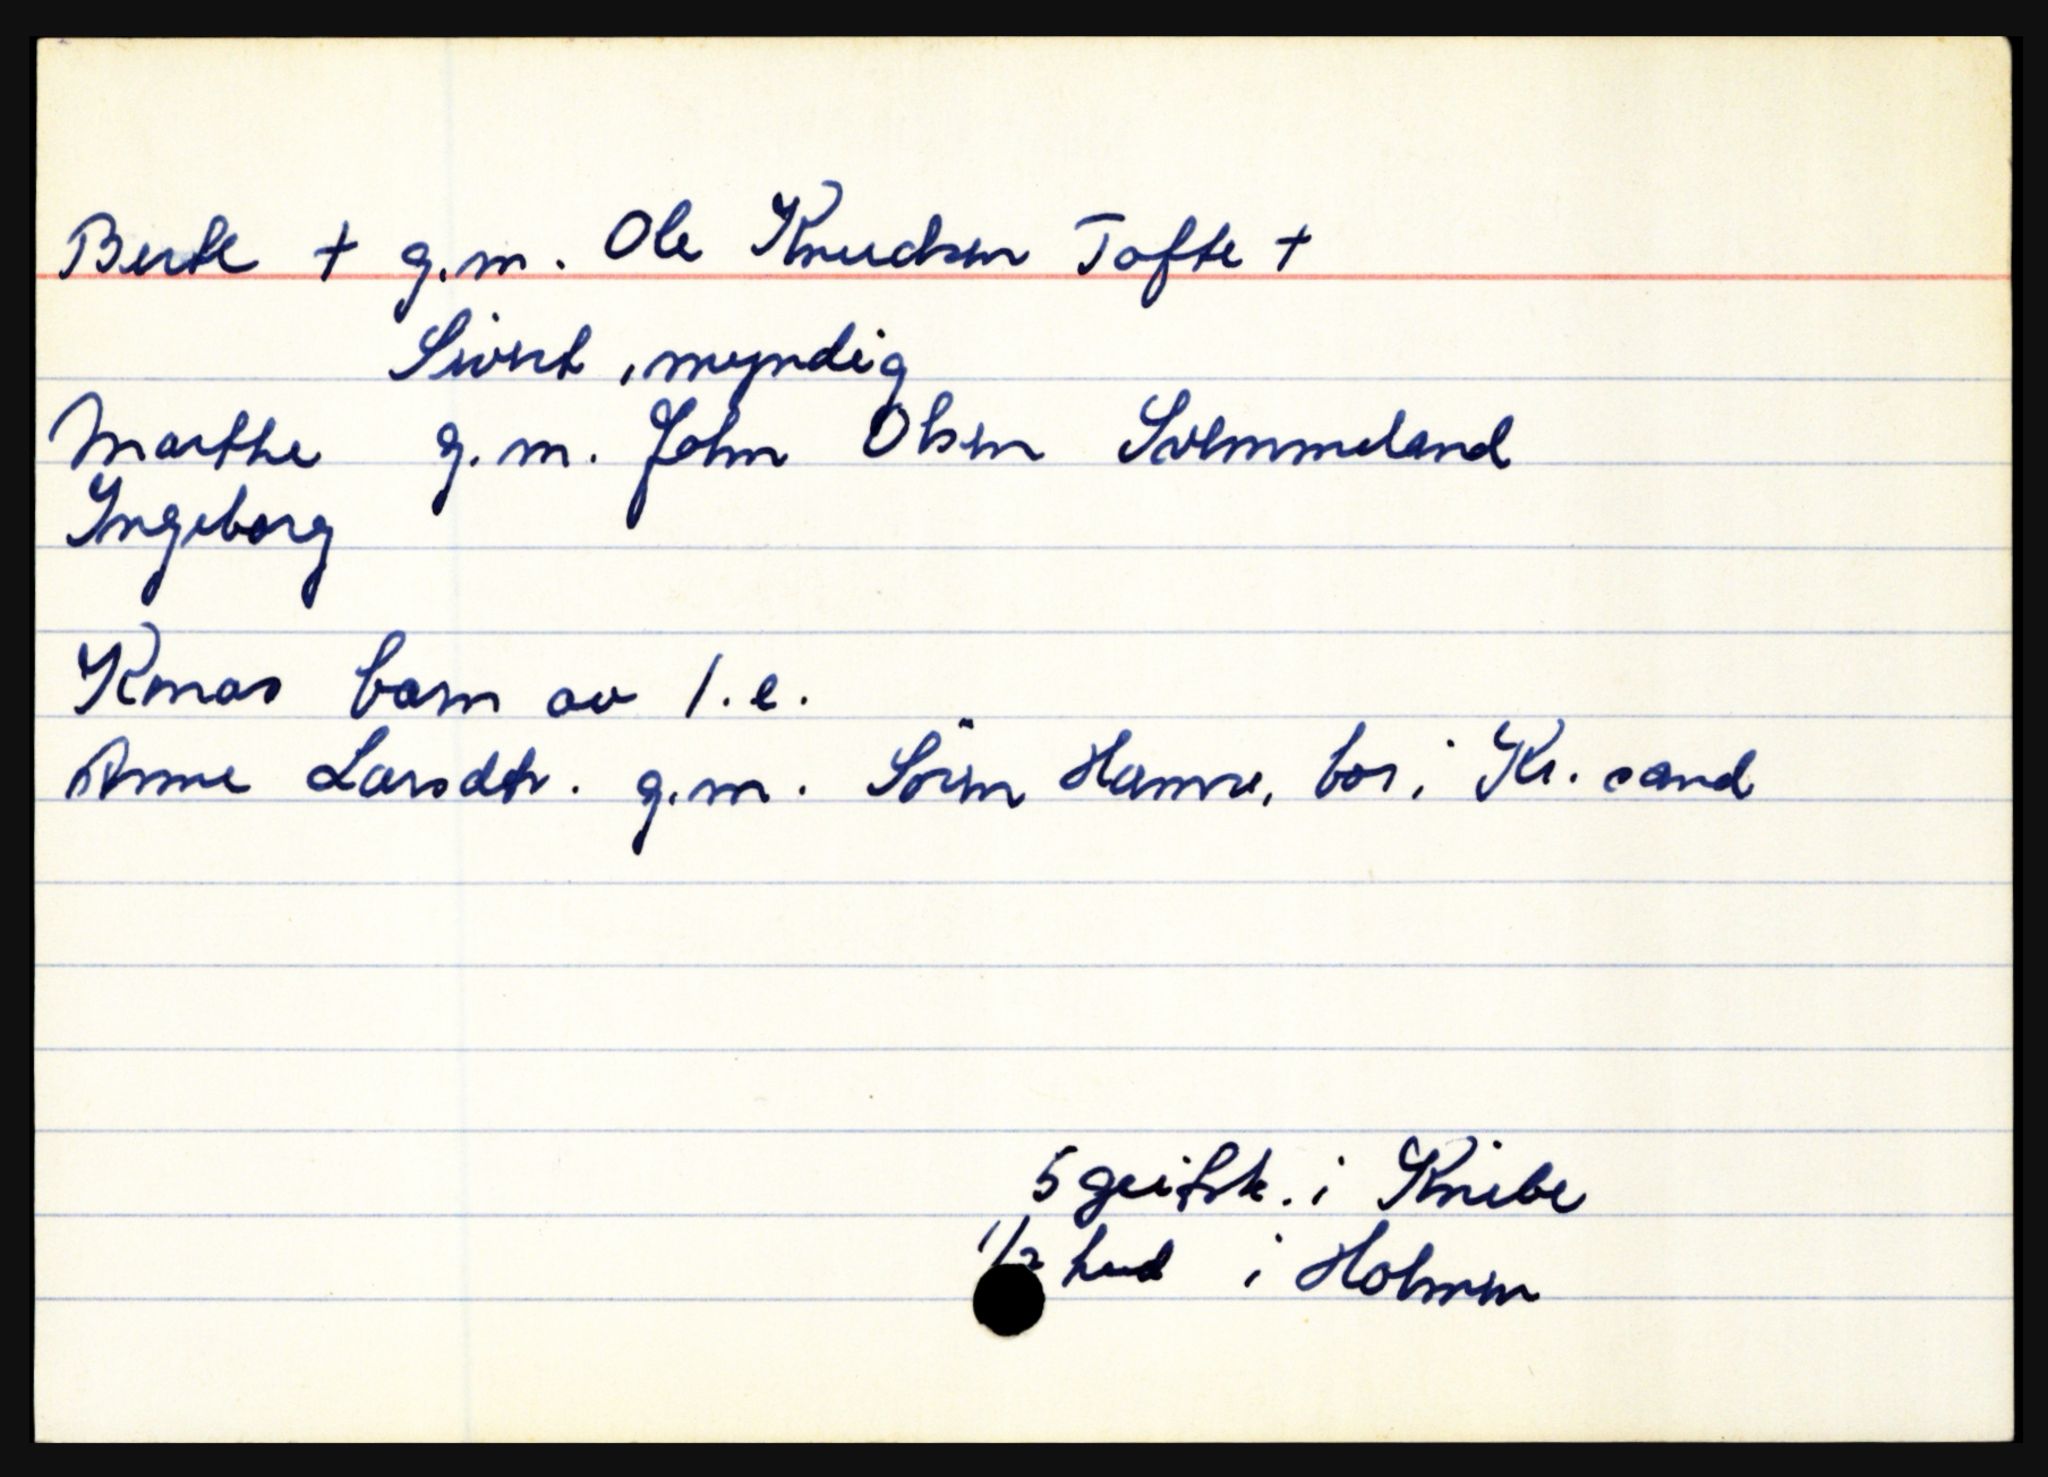 Berte + g.m. Ole Knudsen Tofte +
Sivert, myndig
Marthe g.m. John Olsen Svennneland
Ingeborg
Konas barn av 1.e.
Anne Larsdtr. g.m. Sören Hamre, bor i Kr.sand
5 geitsk. i Knibe
1/2 hud i Holmen